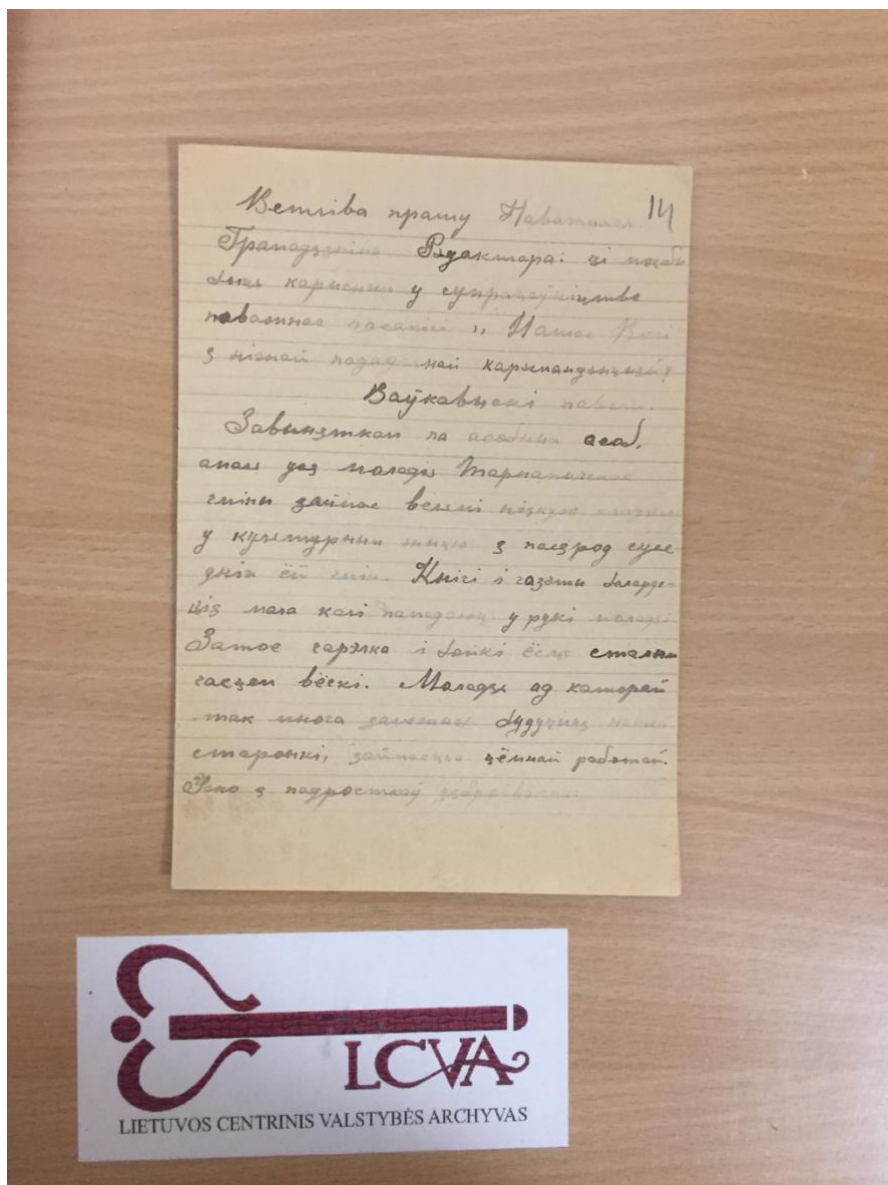 14
Ветліва прашу Паважнага
Грамадзяніна Рэдактара: ці
быць карысным у супрацоўніцтве
паважнае часопісі „Нашае Волі
з ніжэй пададзенай карэспандэнцыяй?
Ваўкавыскі павет.
За выняткам па асобным асоб,
агалам уся моладзь
гміны займае вельмі нізкую
у культурным жыцці з пасярод сусе
дніх ёй гмін. Кнігі і газэты беларус-
ція мала калі пападаюць у рукі моладзі
Затое гарэлка і бойкі ёсць сталым
гасцем вёскі. Моладзь ад каторай
так многа залежыць будучына нашай
старонкі, займаецца цёмнай работай.
з падросткаў
LCVA
LIETUVOS CENTRINIS VALSTYBĖS ARCHYVAS